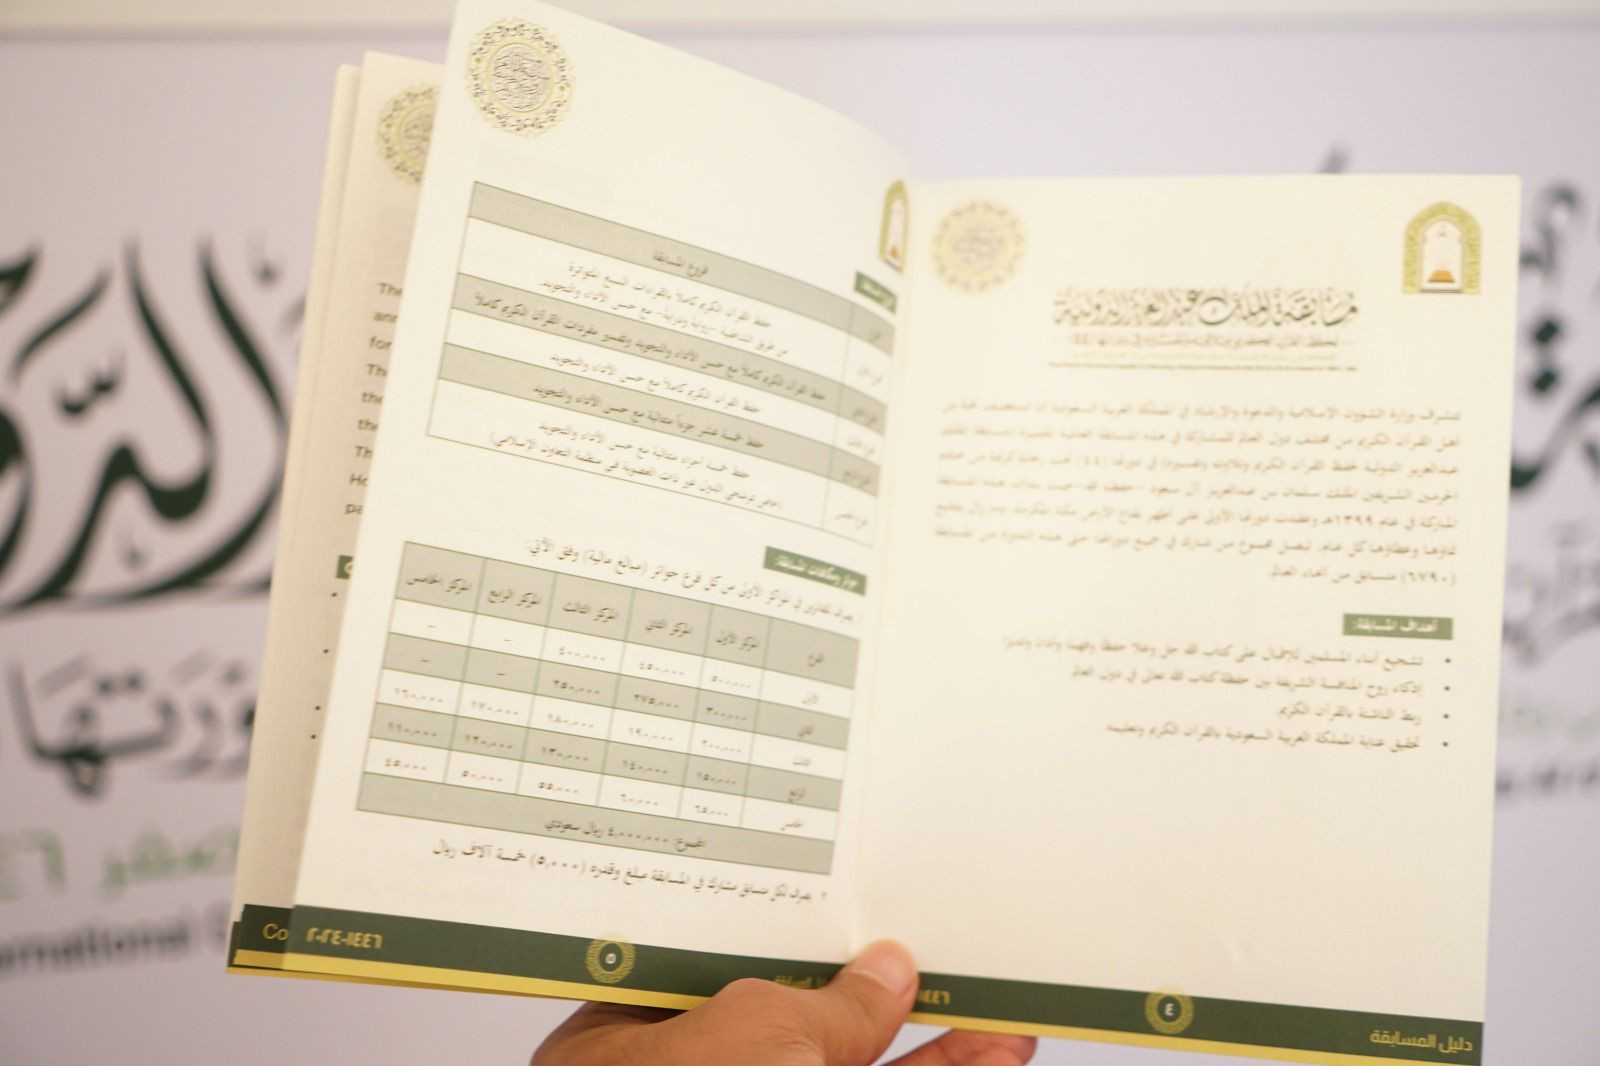 مسابقة الملك عبدالعزيز الدولية
لحفظ القرآن الكريم وتلاوته وتفسيره في دورتها ٤٤
تتشرف وزارة الشؤون الإسلامية والدعوة والإرشاد في المملكة العربية السعودية أن تستضيف نخبة من
أهل القرآن الكريم من مختلف دول العالم للمشاركة في هذه المسابقة العالمية المتميزة (مسابقة الملك
عبدالعزيز الدولية لحفظ القرآن الكريم وتلاوته وتفسيره) في دورتها (٤٤) تحت رعاية كريمة من خادم
الحرمين الشريفين الملك سلمان بن عبدالعزيز آل سعود -حفظه الله- حيث بدأت هذه المسابقة
المباركة في عام ١٣٩٩هـ وعقدت دورتها الأولى على أطهر بقاع الأرض مكة المكرمة، وما زال يتتابع
نماؤها وعطاؤها كل عام، ليصل مجموع من شارك في جميع دوراتها حتى هذه الدورة من المسابقة
(٦٧٩٠) متسابق من أنحاء العالم.
أهداف المسابقة:
• تشجيع أبناء المسلمين للإقبال على كتاب الله جل وعلا حفظًا وفهمًا وأداءً وتدبرًا
• إذكاء روح المنافسة الشريفة بين حفظة كتاب الله تعالى في دول العالم
• ربط الناشئة بالقرآن الكريم
• تحقيق عناية المملكة العربية السعودية بالقرآن الكريم وتعليمه.
دليل المسابقة
٤
فروع المسابقة
حفظ القرآن الكريم كاملاً بالقراءات السبع المتواترة
من طريق الشاطبية -رواية ودراية- مع حسن الأداء والتجويد.
حفظ القرآن الكريم كاملاً مع حسن الأداء والتجويد وتفسير مفردات القرآن الكريم كاملاً
حفظ القرآن الكريم كاملاً مع حسن الأداء والتجويد
حفظ خمسة عشر جزءاً متتالية مع حسن الأداء والتجويد
حفظ خمسة أجزاء متتالية مع حسن الأداء والتجويد
(خاص بمرشحي الدول غير ذات العضوية في منظمة التعاون الإسلامي)
جوائز ومكافآت المسابقة:
١ يصرف للفائزين في المراكز الأولى من كل فرع جوائز (مبالغ مالية) وفق الآتي:
الفرع المركز الأول المركز الثاني المركز الثالث المركز الرابع المركز الخامس
الأول ٥٠٠,٠٠٠ ٤٥٠,٠٠٠ ٤٠٠,٠٠٠ - -
الثاني ٣٠٠,٠٠٠ ٢٧٥,٠٠٠ ٢٥٠,٠٠٠ - -
الثالث ٢٠٠,٠٠٠ ١٩٠,٠٠٠ ١٨٠,٠٠٠ ١٧٠,٠٠٠ ١٦٠,٠٠٠
الرابع ١٥٠,٠٠٠ ١٤٠,٠٠٠ ١٣٠,٠٠٠ ١٢٠,٠٠٠ ١١٠,٠٠٠
الخامس ٦٥,٠٠٠ ٦٠,٠٠٠ ٥٥,٠٠٠ ٥٠,٠٠٠ ٤٥,٠٠٠
المجموع: ٤,٠٠٠,٠٠٠ ريال سعودي
٢ يصرف لكل متسابق مشارك في المسابقة مبلغ وقدره (٥,٠٠٠) خمسة آلاف ريال
٥
٢٠٢٤-١٤٤٦